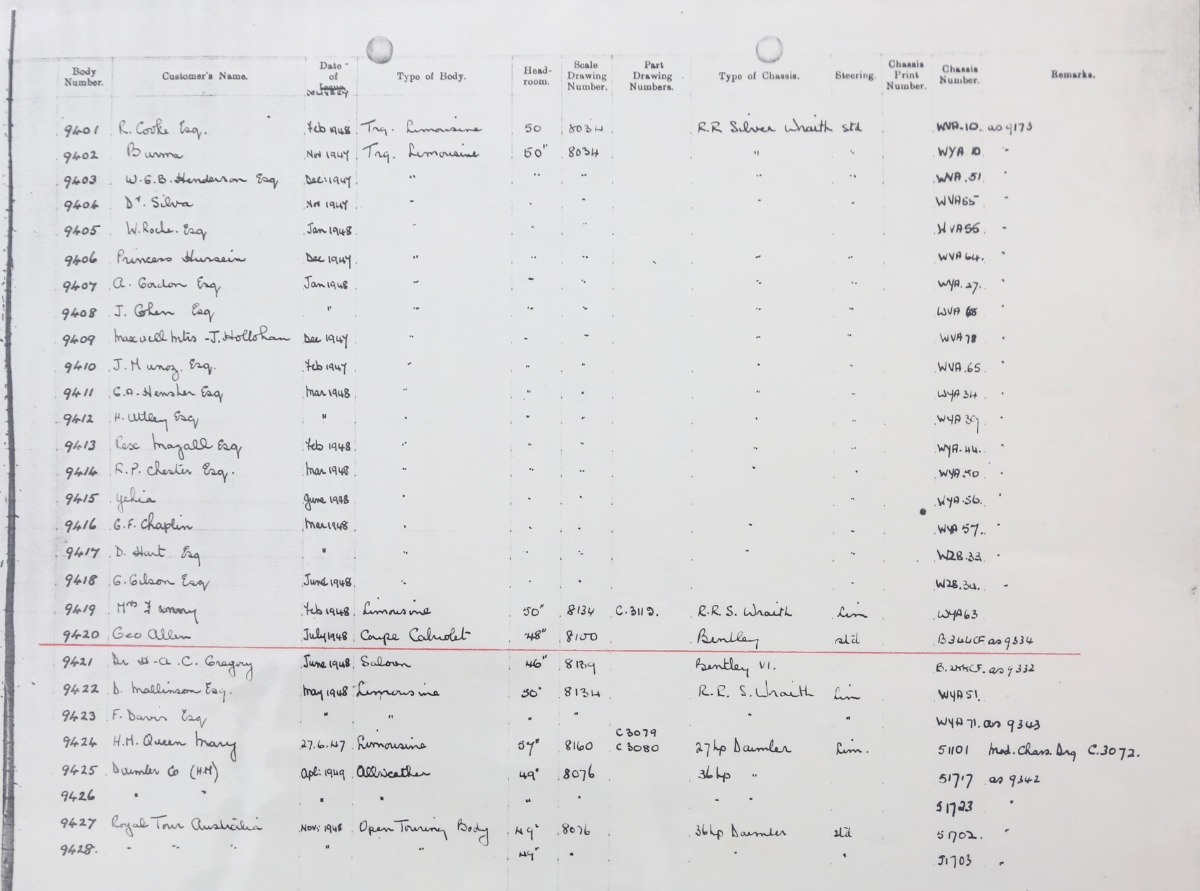 Body Number. Customer's Name. Date of Issue Delivery Type of Body. Head-room. Scale Drawing Number. Part Drawing Numbers. Type of Chassis. Steering. Chassis Print Number. Chassis Number. Remarks.
9401 R. Cooke Esq. Feb 1948 Trg. Limousine 50 8034 R.R Silver Wraith std WVA.10. as 9173
9402 Burma Nov 1947 Trg. Limousine 50" 8034 " " WYA 10 "
9403 W.G.B. Henderson Esq Dec: 1947 " " " " " WVA.51. "
9404 Dr. Silva Nov 1947 " " " " " WVA55 "
9405 W. Roche. Esq Jan 1948 " " " " " WVA56 "
9406 Princess Hussein Dec 1947 " " " " " WVA64. "
9407 A. Gordon Esq Jan 1948 " " " " " WYA.27. "
9408 J. Cohen Esq " " " " " " WVA 68 "
9409 Maxwell Mtrs - J. Hollohan Dec 1947 " " " " " WVA78 "
9410 J. Munoz. Esq. Feb 1947 " " " " " WVA.65. "
9411 G.A. Hensher Esq Mar 1948 " " " " " WYA34 "
9412 H. Utley Esq " " " " " " WYA39 "
9413 Rex Mazall Esq Feb 1948 " " " " " WYA.44. "
9414 R.P. Chester Esq. Mar 1948 " " " " " WYA.50 "
9415 Yehia June 1948 " " " " " WYA.56. "
9416 G.F. Chaplin Mar 1948 " " " " " WYA 57. "
9417 D. Hart Esq " " " " " " WZB.33. "
9418 G. Gilson Esq June 1948 " " " " " WZB.34. "
9419 Mrs F Feb 1948 Limousine 50" 8134 C.3112. R.R.S. Wraith Lim WYA63
9420 Geo Allen July 1948 Coupe Cabriolet 48" 8100 Bentley std B344CF as 9334
9421 Dr H.A.C. Gregory June 1948 Saloon 46" 8139 Bentley VI. as 9332
9422 D. Mallinson Esq. May 1948 Limousine 50" 8134 R.R.S. Wraith Lim WYA51.
9423 F. Davis Esq " " " " " " WYA 71. as 9343
9424 H.M. Queen Mary 27.6.47 Limousine 57" 8160 C3079 C3080 27hp Daimler Lim. 51101 Mod. Chass. Drg C.3072.
9425 Daimler Co (H.M) Apl: 1949 Allweather 49" 8076 36hp " 51717 as 9342
9426 " " " " " " " " 51723 "
9427 Royal Tour Australia Nov: 1948 Open Touring Body 49" 8076 36hp Daimler std 51702. "
9428. " " " " " 49" " " " 51703 "